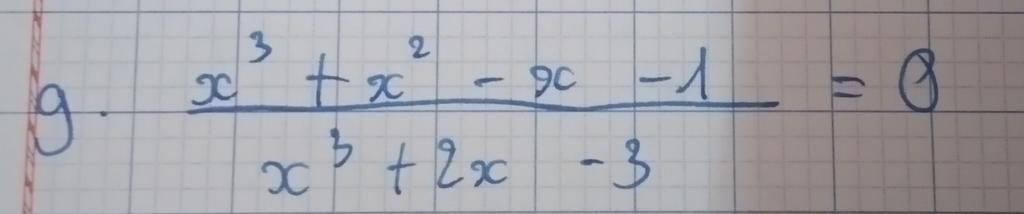 9. x³ + x² - x - 1 / x³ + 2x - 3 = 0